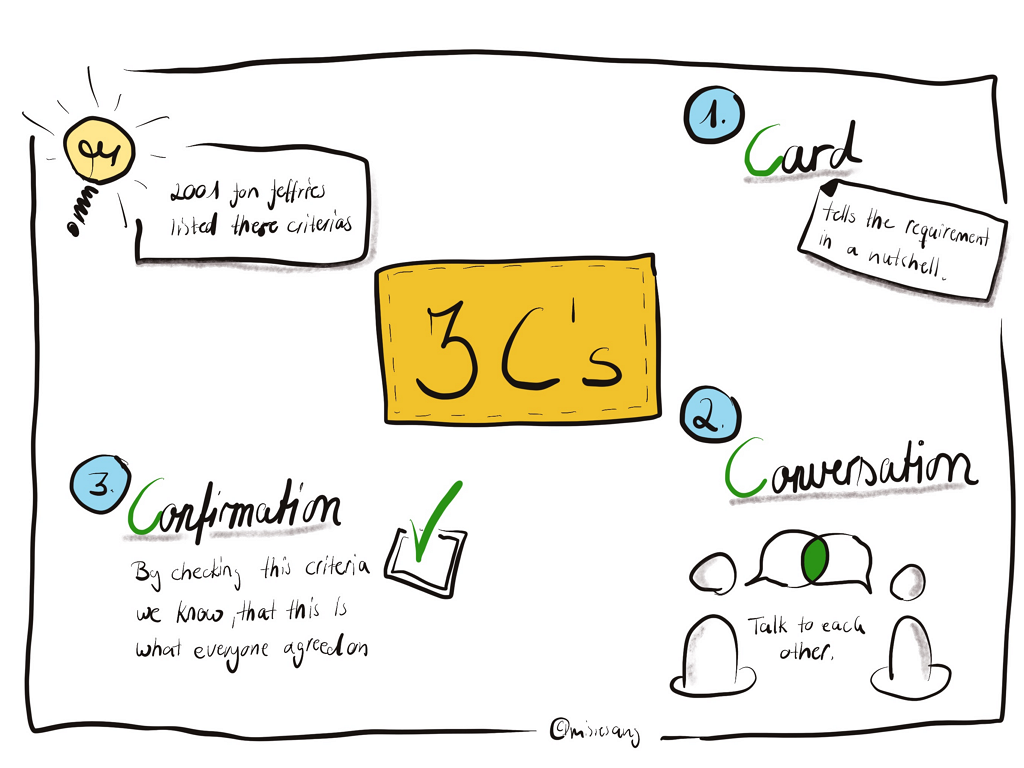 2001 Jon Jeffries
listed these criterias
3C's
1.
Card
tells the requirement
in a nutshell.
2.
Conversation
Talk to each
other.
3.
Confirmation
By checking this criteria
we know, that this is
what everyone agreed on